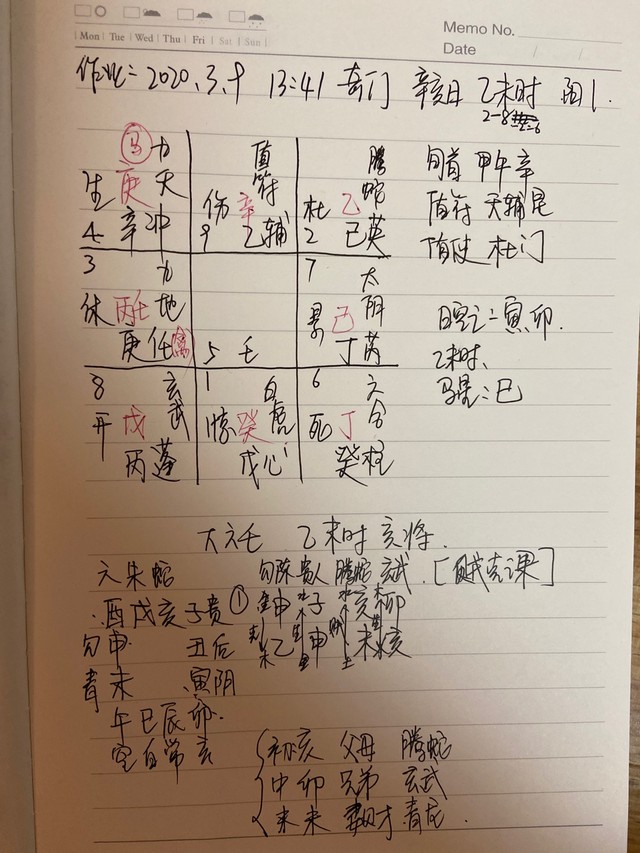 Memo No.
Mon Tue Wed Thu Fri Sat Sun
Date / /
作业: 2020.3.9 13:41 奇门 辛亥日 乙未时 阳1.
马 九 值 腾
生 庚 天 符 蛇
伤 辛 杜 乙
4 辛 冲 9 乙 辅 2 己 英
3 九 7 太
休 丙壬 地 景 己 阴
庚 任 5 壬 丁 芮
8 玄 1 白 6 六
开 戊 武 惊 癸 虎 死 丁 合
丙 蓬 戊 心 癸 柱
旬首 甲午辛
值符 天辅星
值使 杜门
日空亡=寅卯.
乙未时、
马星:巳
大六壬 乙未时 亥将.
六 朱 蛇 勾陈 贵人 腾蛇 玄武. [贼克课]
酉戌亥子贵 ① 申 子 亥 卯
勾申 丑后 乙 申 未 亥
青 未 寅阴
午巳辰卯.
空白常玄
初亥 父母 腾蛇
中 卯 兄弟 玄武
末 未 妻财 青龙.